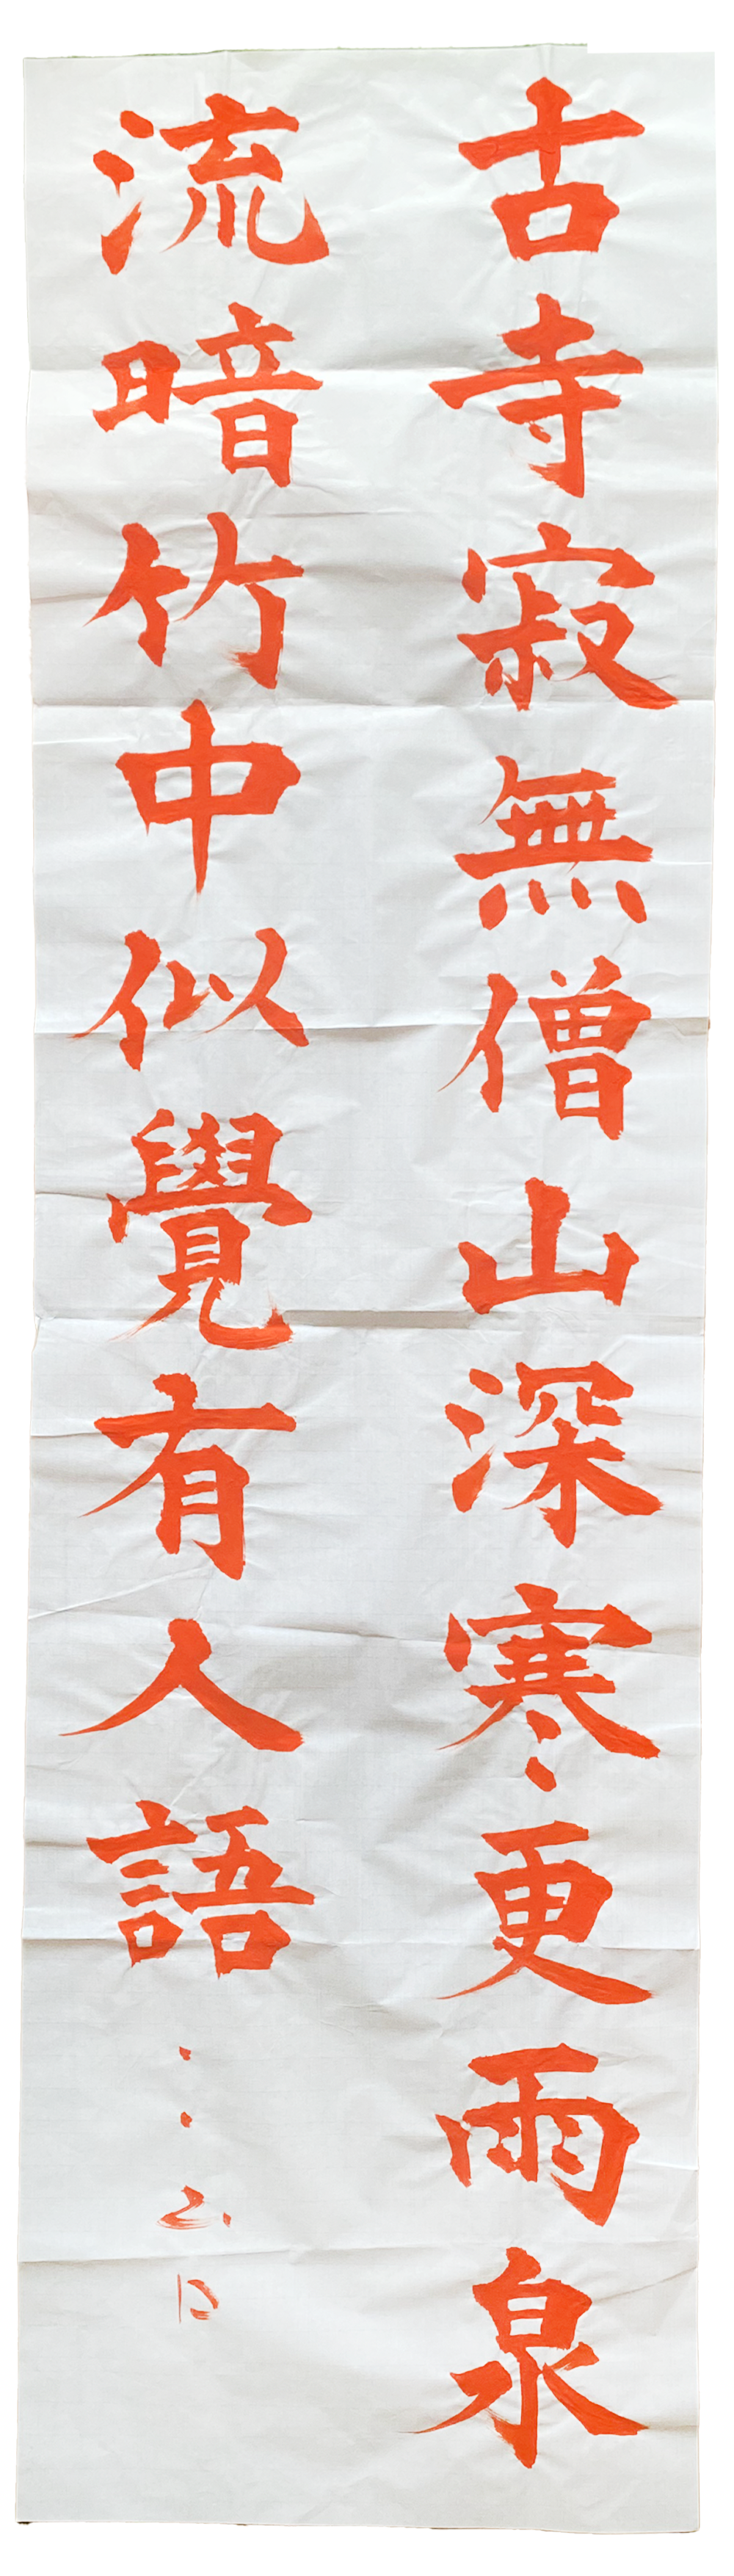 古寺寂無僧山深寒更雨泉
流暗竹中似覺有人語